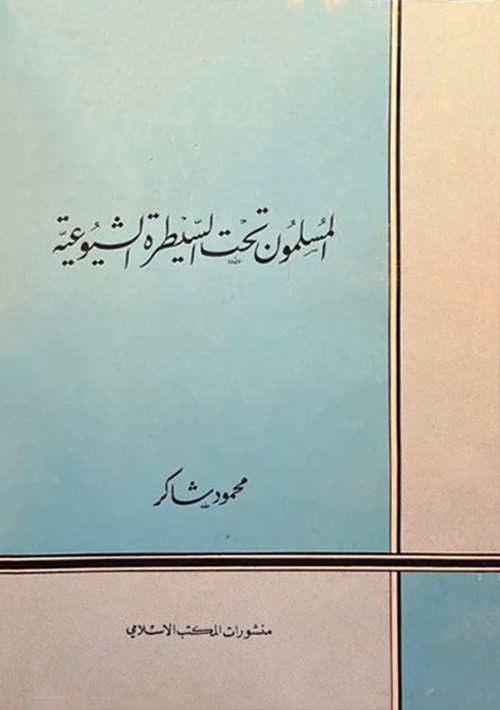 المسُلِمُون تحْت السَّيْطرة الشيُوعيَّة
محمود شاكر
منشورات المكتب الاسلامي